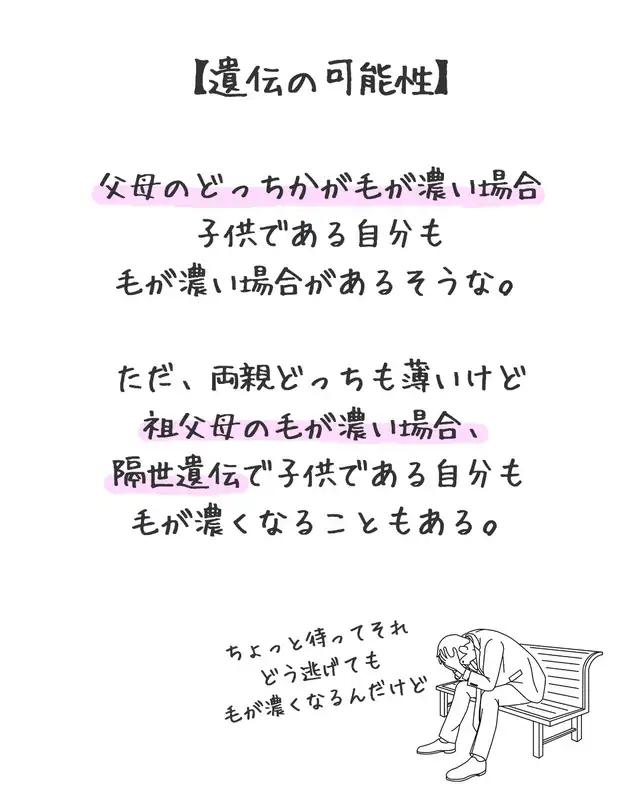 【遺伝の可能性】
父母のどっちかが毛が濃い場合
子供である自分も
毛が濃い場合があるそうな。
ただ、両親どっちも薄いけど
祖父母の毛が濃い場合、
隔世遺伝で子供である自分も
毛が濃くなることもある。
ちょっと待ってそれ
どう逃げても
毛が濃くなるんだけど